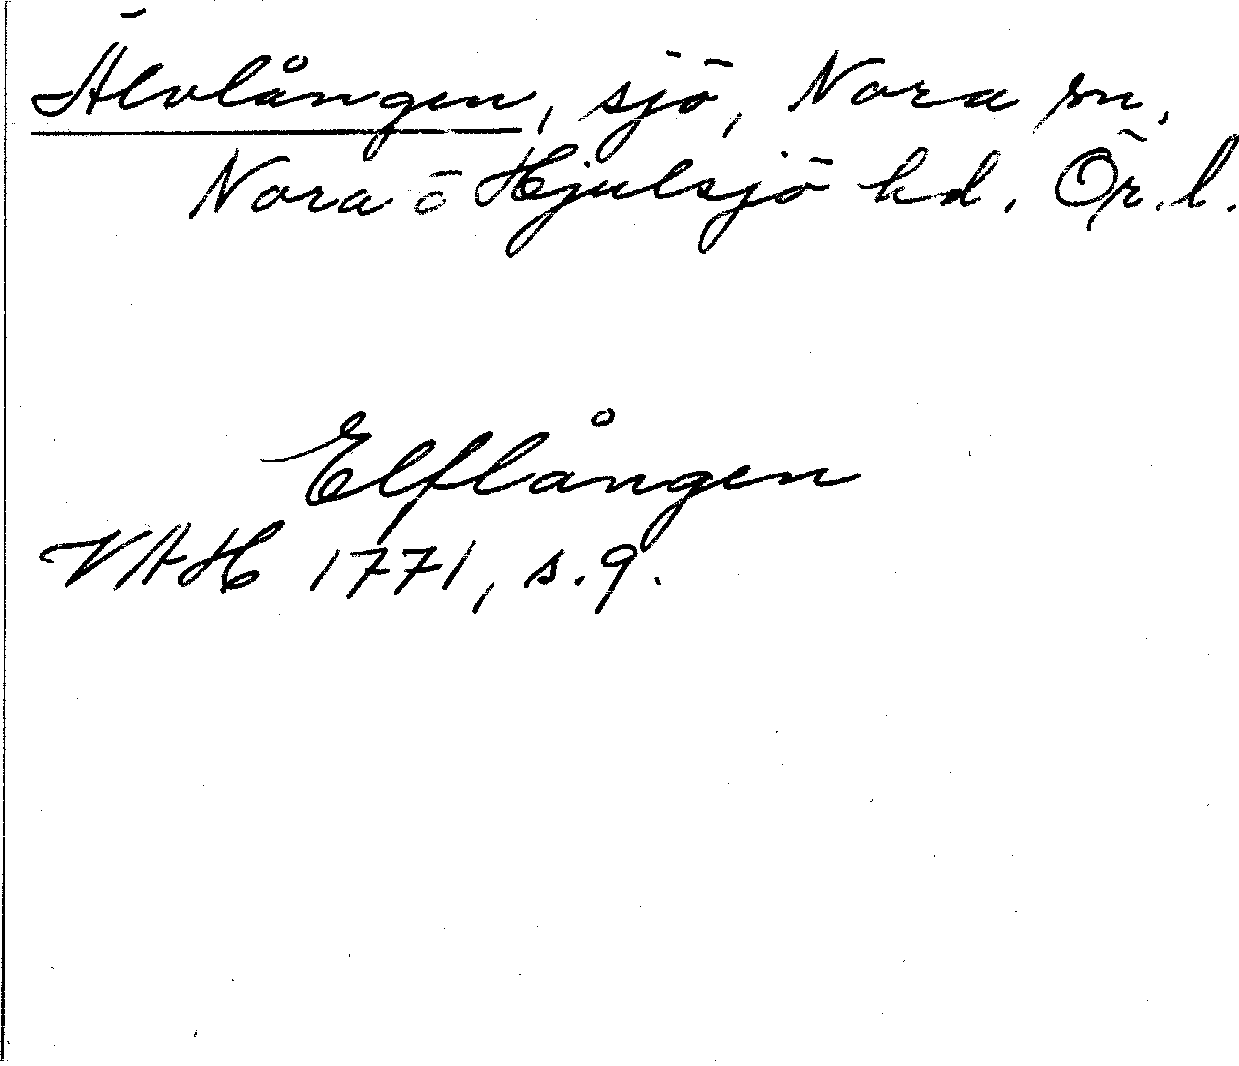 Älvlången, sjö, Nora sn,
Nora o Hjulsjö hd. Ör. l.
Elflången
VAH 1771, s. 9.